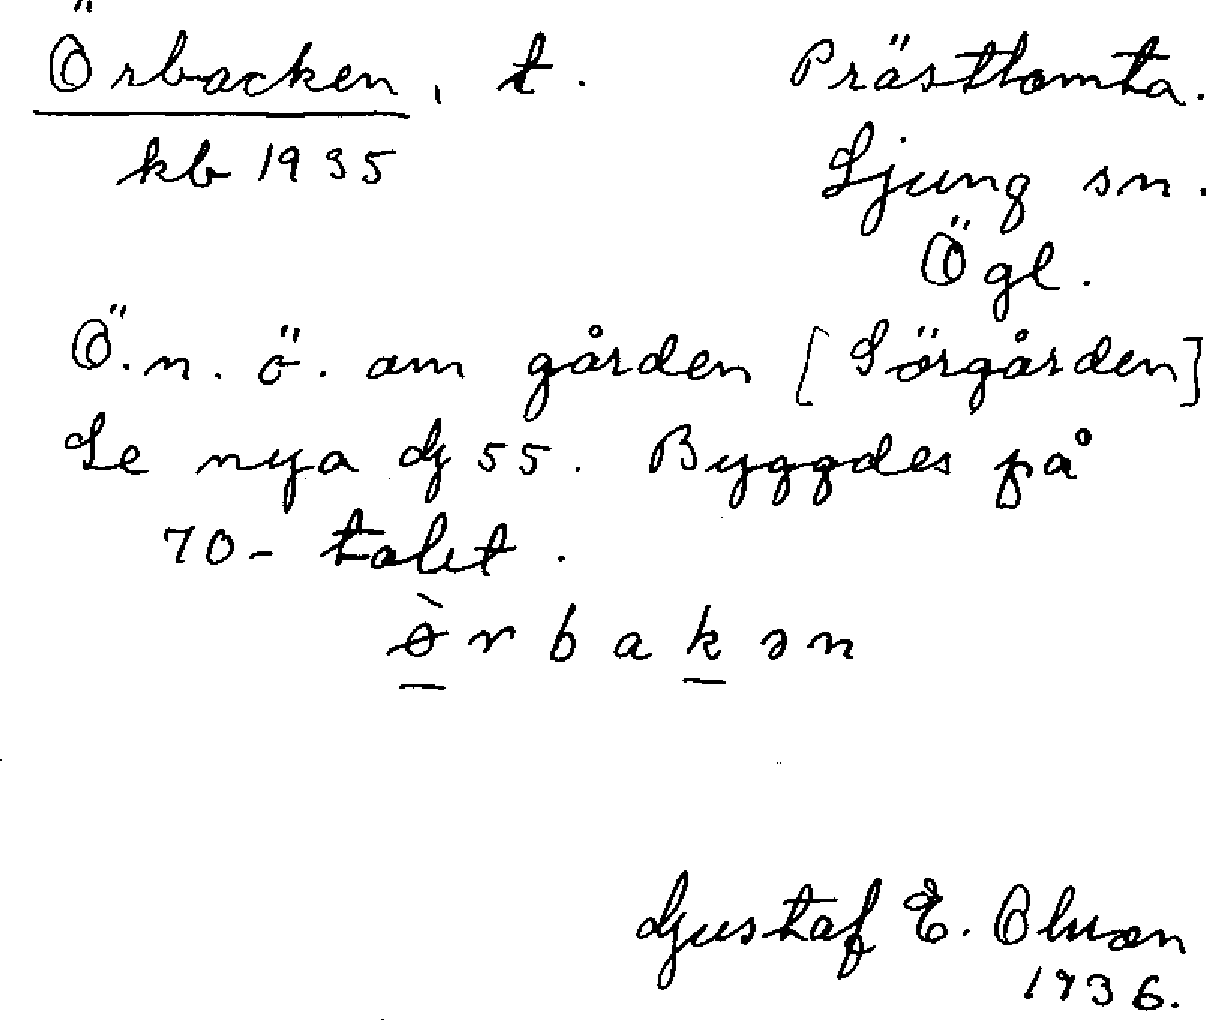 Örbacken, t. Prästtomta.
kb 1935 Ljung sn.
Ögl.
Ö.n.ö. om gården [Sörgården]
Se nya dj 55. Byggdes på
70-talet.
ɵ̀rbakən
Gustaf E. Olsson
1936.